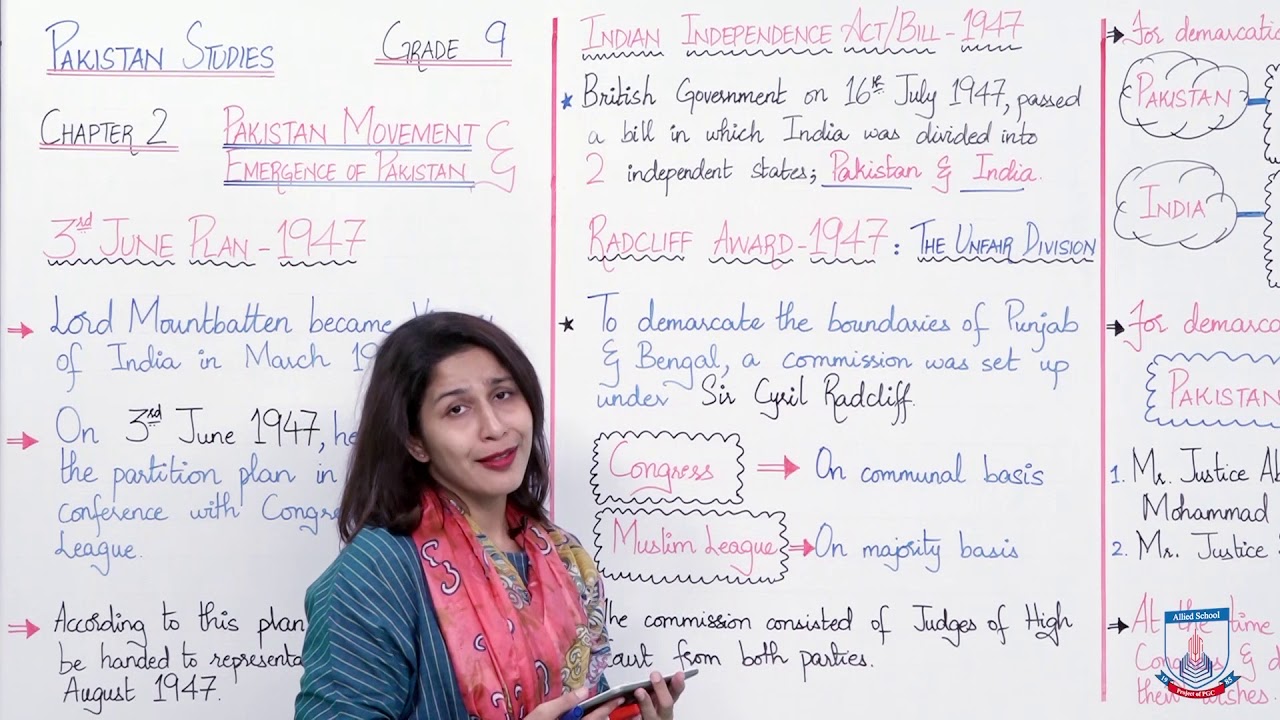 PAKISTAN STUDIES
GRADE 9
CHAPTER 2
PAKISTAN MOVEMENT &
EMERGENCE OF PAKISTAN
3rd JUNE PLAN - 1947
Lord Mountbatten became
of India in March
On 3rd June 1947, he
the partition plan in
conference with
League.
According to this plan
be handed to
August 1947.
INDIAN INDEPENDENCE ACT/BILL - 1947
British Government on 16th July 1947, passed
a bill in which India was divided into
2 independent states; Pakistan & India.
RADCLIFF AWARD - 1947 : THE UNFAIR DIVISION
To demarcate the boundaries of Punjab
& Bengal, a commission was set up
under Sir Cyril Radcliff.
Congress → On communal basis
Muslim League → On majority basis
commission consisted of Judges of High
from both parties.
For
PAKISTAN
INDIA
For
PAKISTAN
1. Mr. Justice
Mohammad
2. Mr. Justice
At the time
&
their wishes
Allied School
1985
Project of PGC